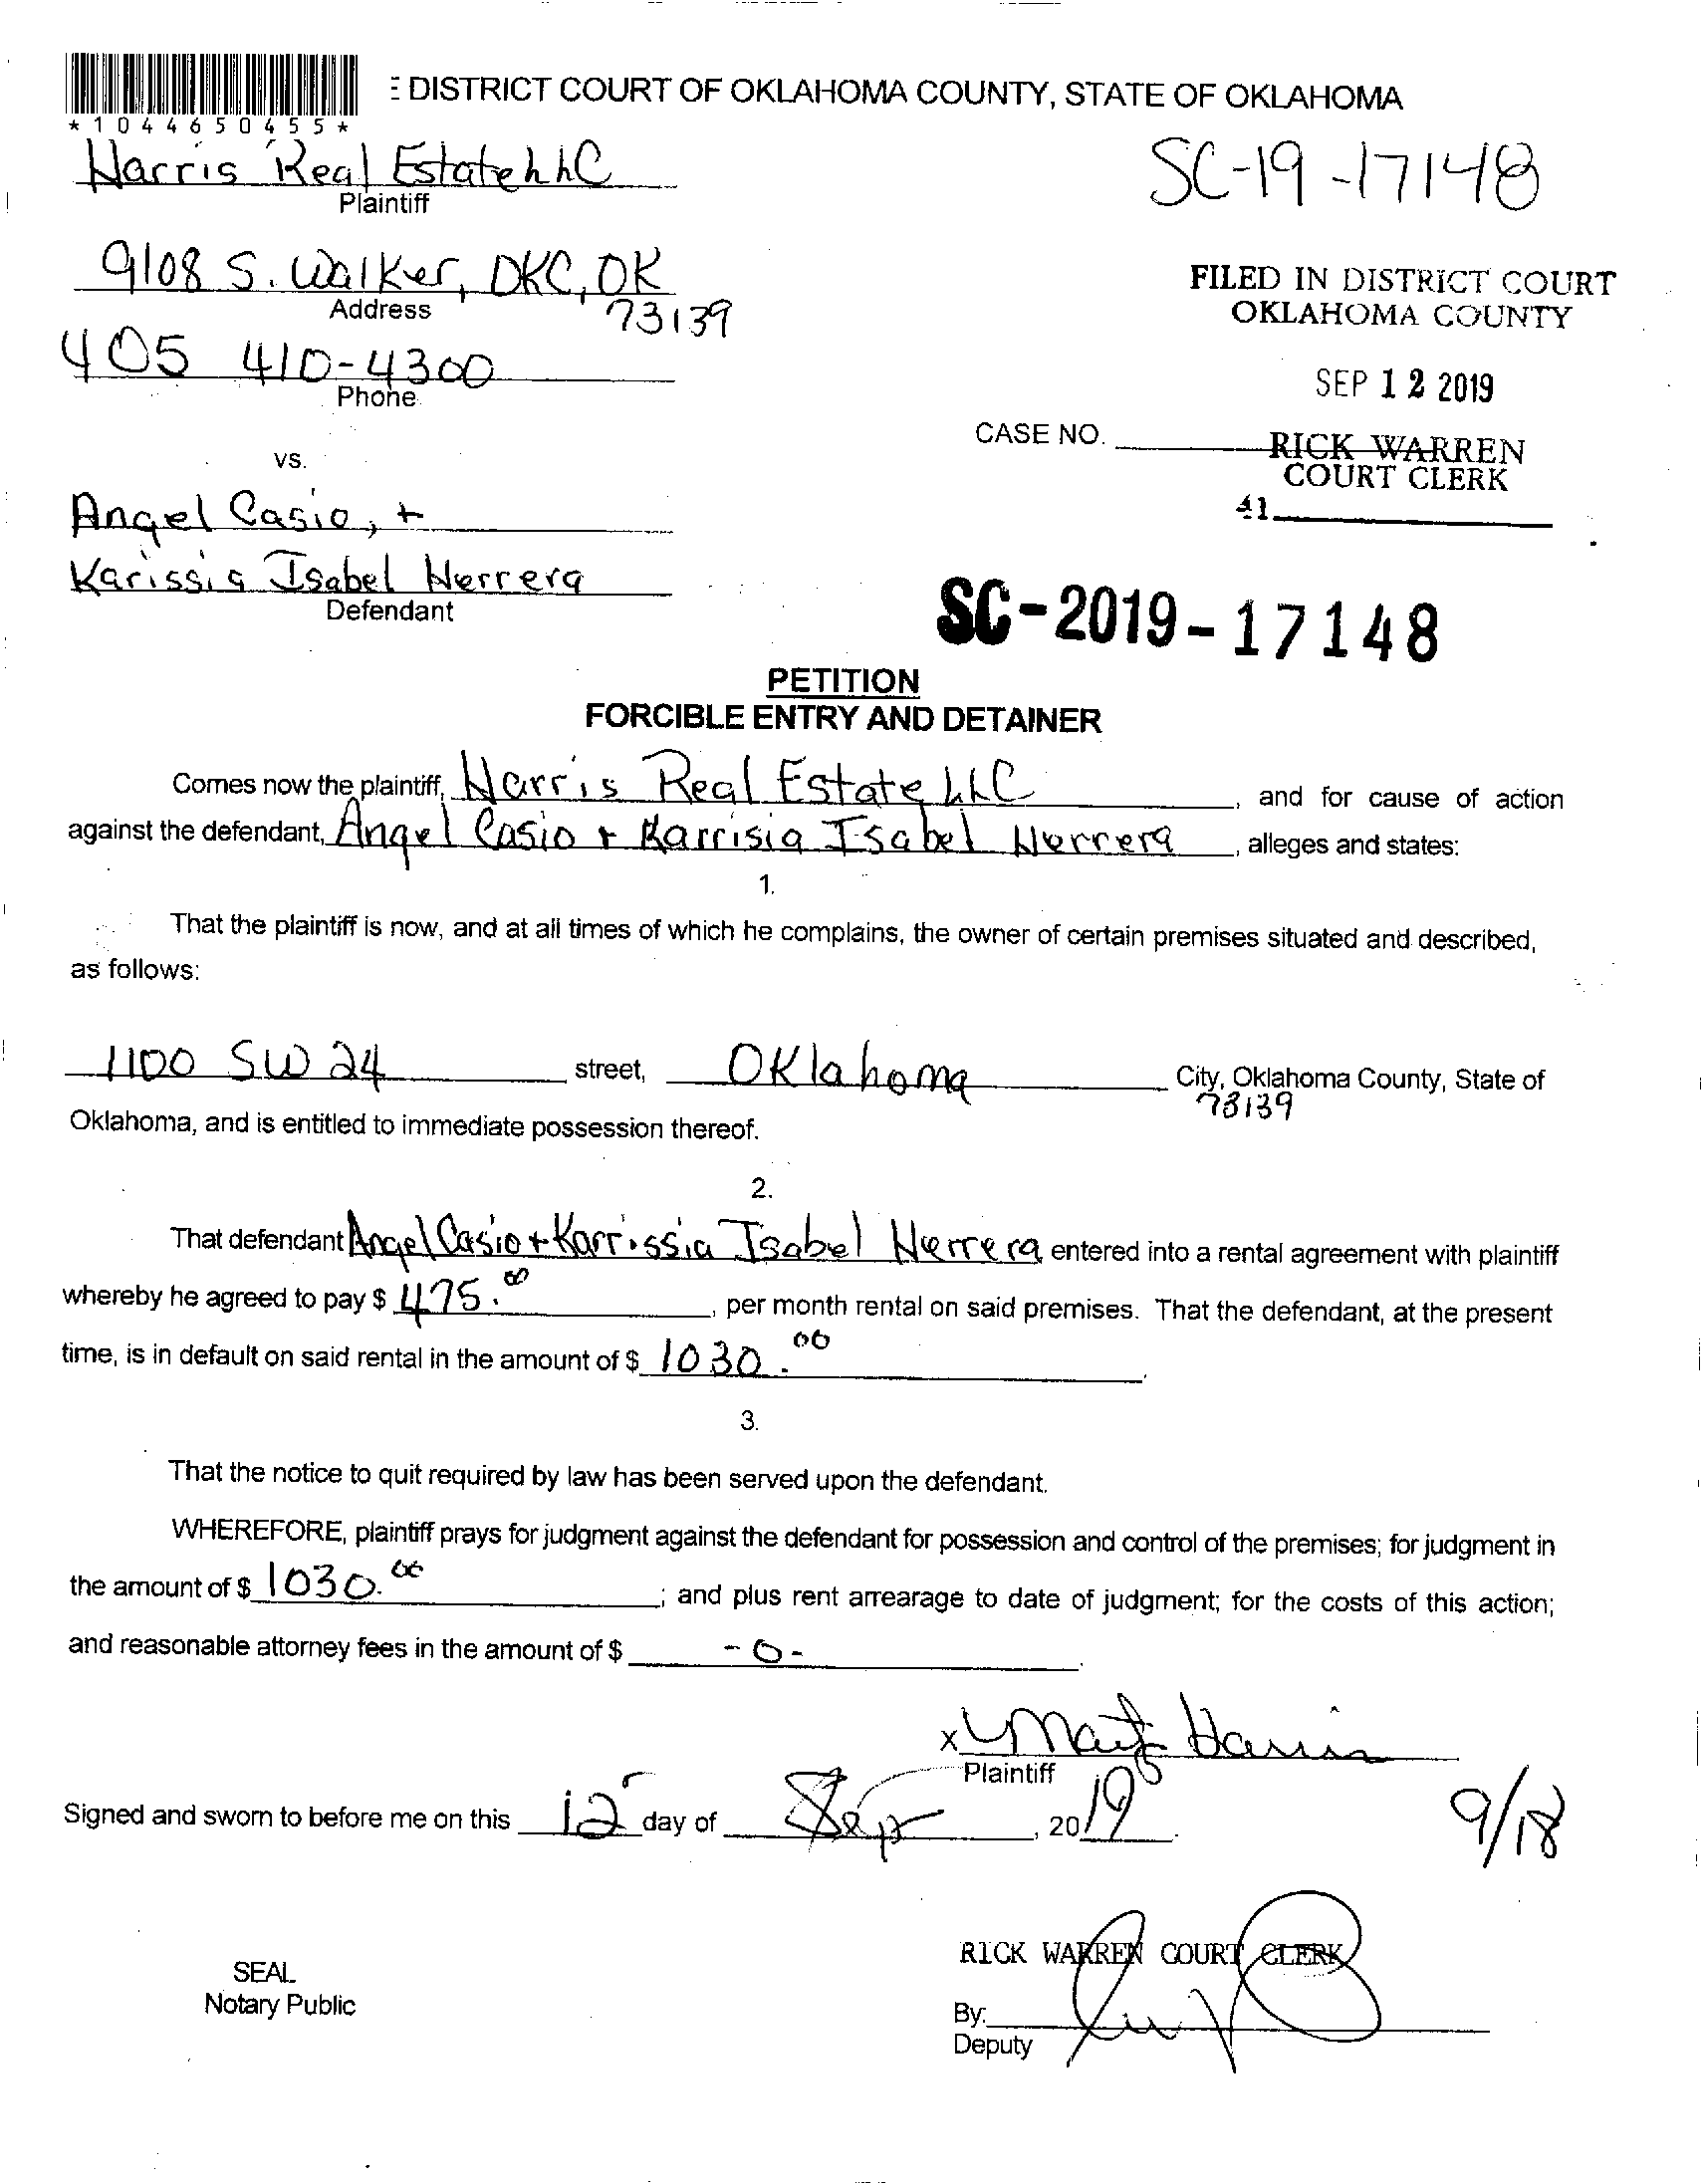 E DISTRICT COURT OF OKLAHOMA COUNTY, STATE OF OKLAHOMA
*1044650455*
Harris Real Estate LLC
Plaintiff
SC-19-17148
9108 S. Walker, OKC, OK
Address
73139
FILED IN DISTRICT COURT
OKLAHOMA COUNTY
405 410-4300
Phone
SEP 12 2019
CASE NO.
RICK WARREN
COURT CLERK
vs.
41
Angel Casio, +
Karissia Isabel Herrera
Defendant
SC-2019-17148
PETITION
FORCIBLE ENTRY AND DETAINER
Comes now the plaintiff, Harris Real Estate LLC, and for cause of action
against the defendant, Angel Casio + Karrisia Isabel Herrera, alleges and states:
1.
That the plaintiff is now, and at all times of which he complains, the owner of certain premises situated and described,
as follows:
1100 SW 24 street, Oklahoma City, Oklahoma County, State of
73139
Oklahoma, and is entitled to immediate possession thereof.
2.
That defendant Angel Casio + Karrissia Isabel Herrera entered into a rental agreement with plaintiff
whereby he agreed to pay $ 475.00, per month rental on said premises. That the defendant, at the present
time, is in default on said rental in the amount of $ 1030.00.
3.
That the notice to quit required by law has been served upon the defendant.
WHEREFORE, plaintiff prays for judgment against the defendant for possession and control of the premises; for judgment in
the amount of $ 1030.00; and plus rent arrearage to date of judgment; for the costs of this action;
and reasonable attorney fees in the amount of $ -0-.
x Harris
Plaintiff
Signed and sworn to before me on this 12 day of Sept, 2019.
9/18
RICK WARREN COURT CLERK
SEAL
Notary Public
By:
Deputy